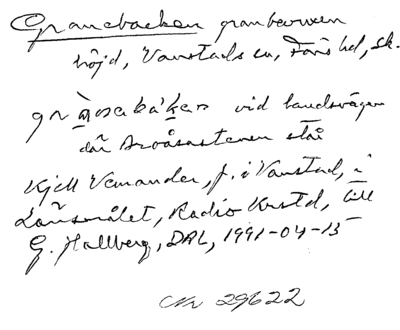 Granebacken granbevuxen
höjd, Vanstads sn, Färs hd, Sk.
vid landsvägen
där Broåsastenen står
Kjell Venander, f. i Vanstad, i
Länsmålet, Radio Krstd, till
G. Hallberg, DAL, 1991-04-13
Nr 29622